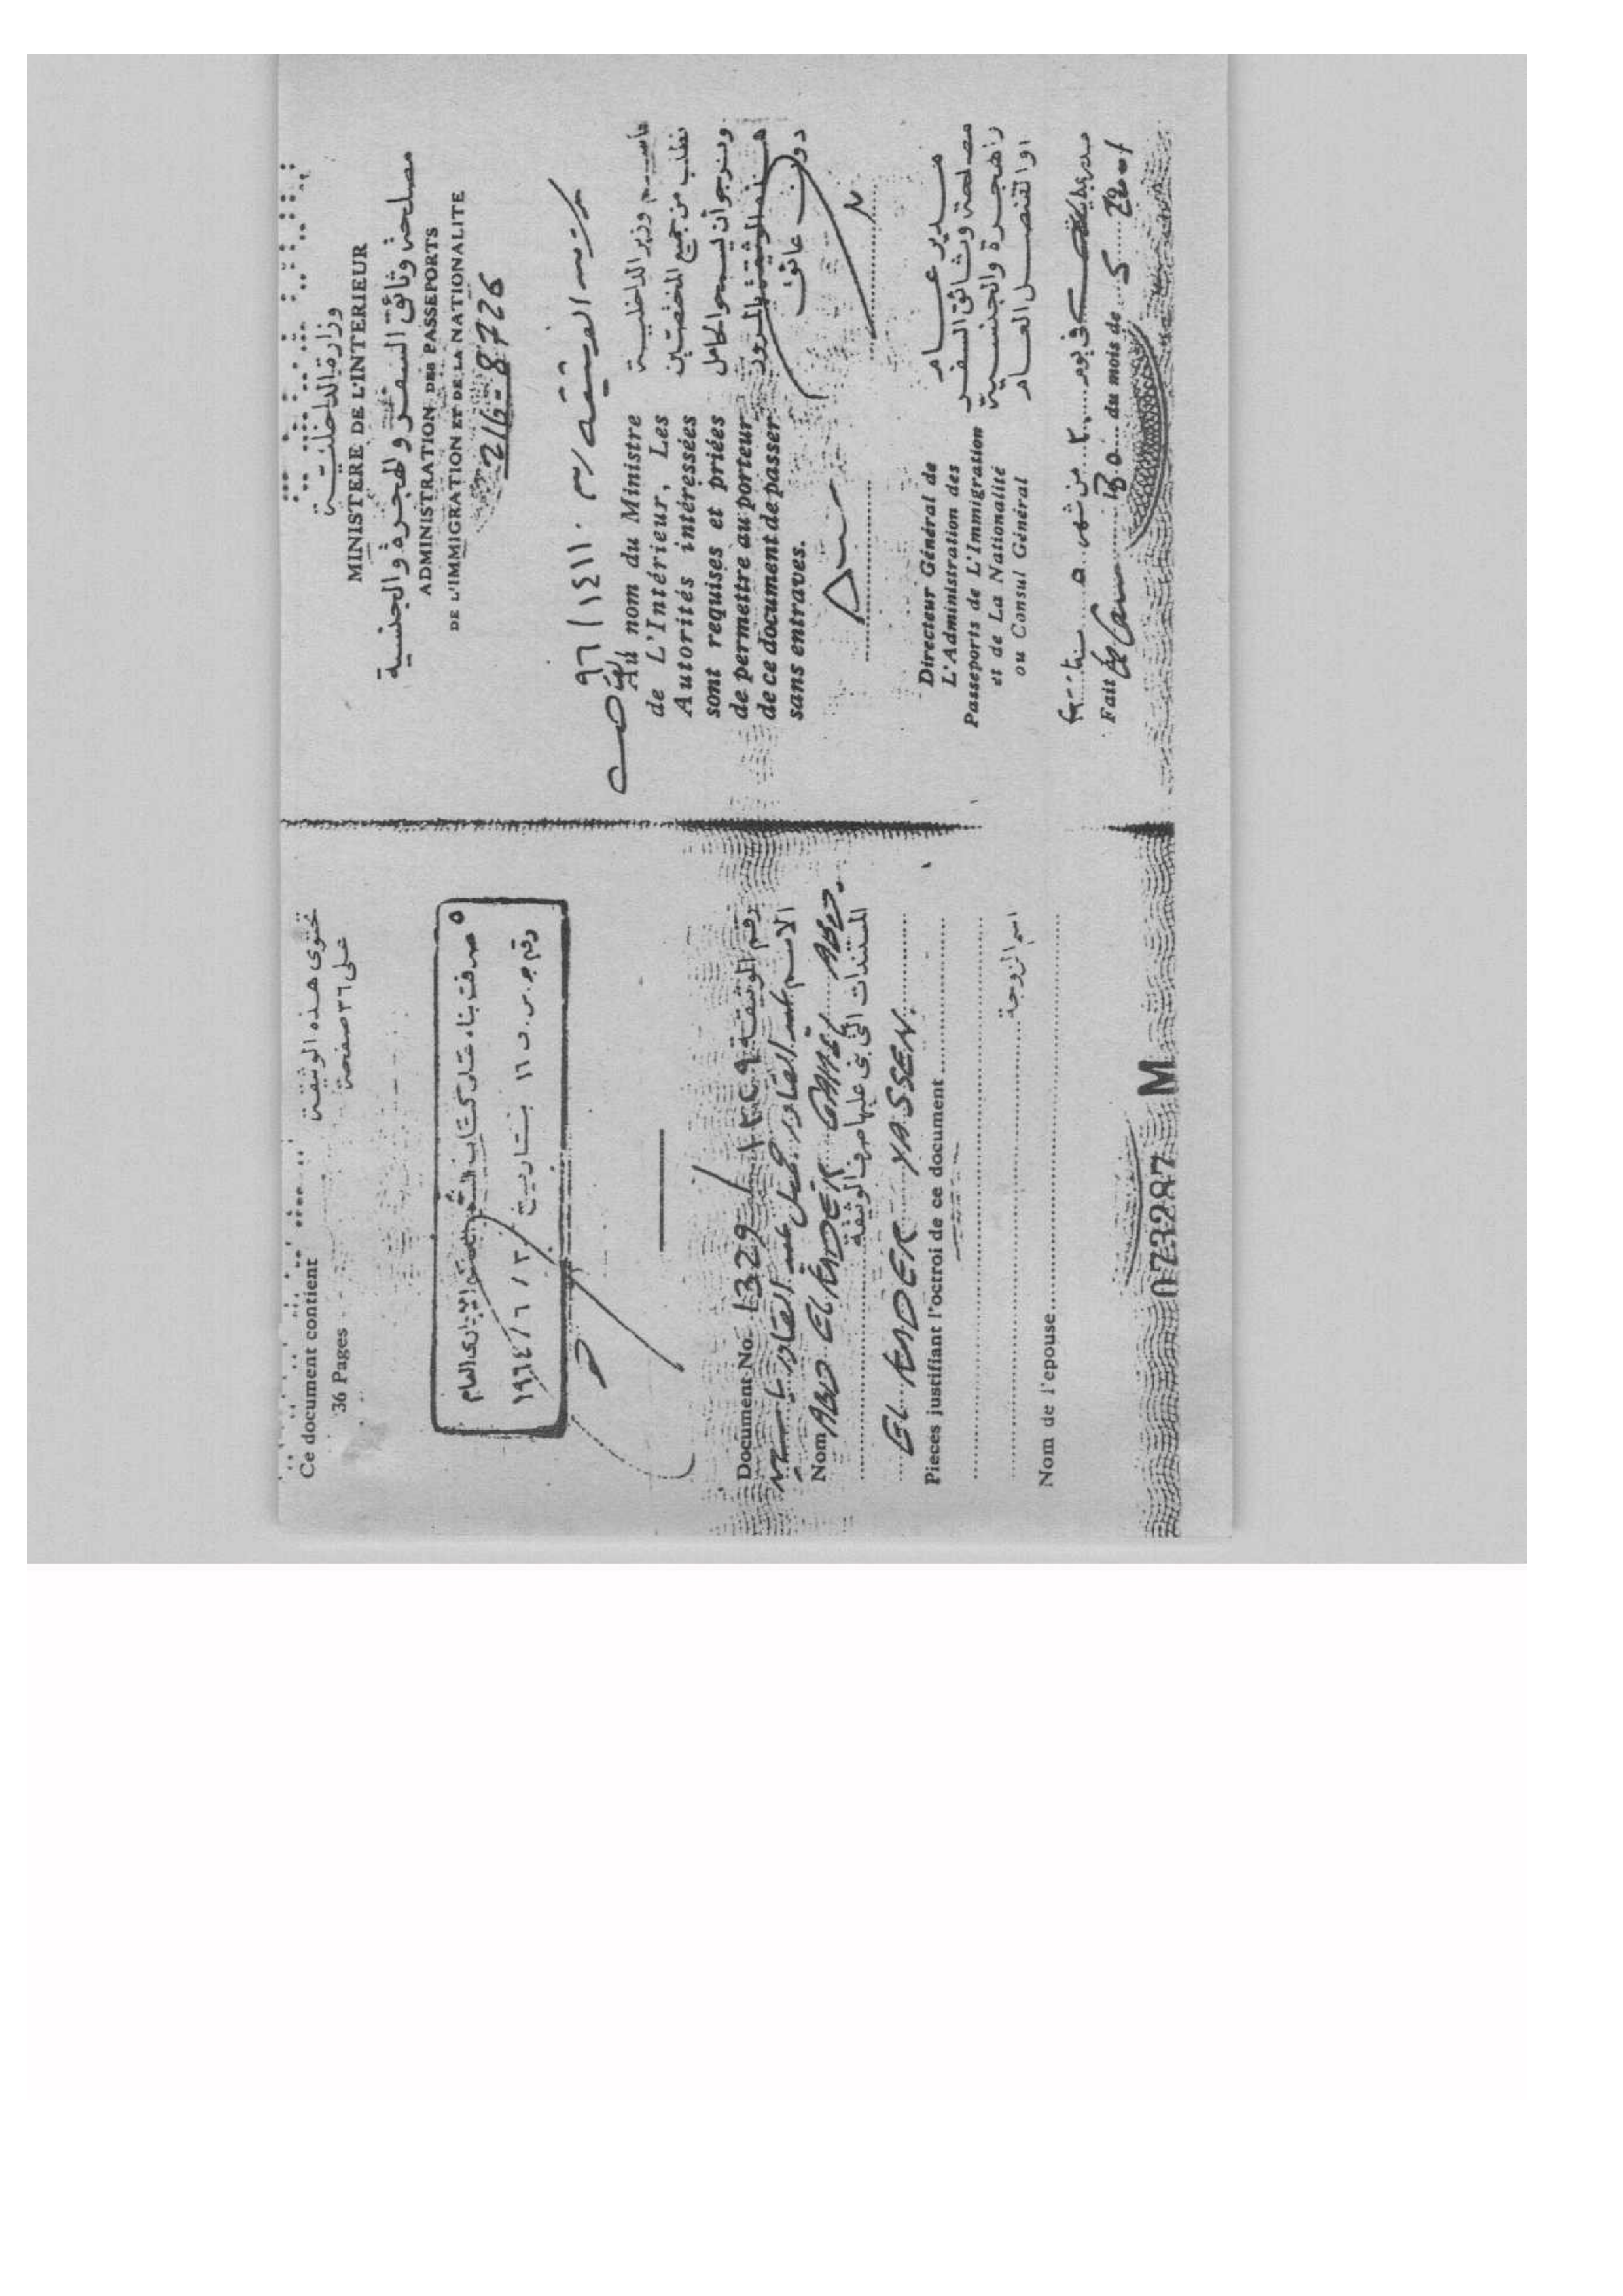 Ce document contient
تحتوى هذه الوثيقة
36 Pages
على ٣٦ صفحة
صرفت بناء على كتاب
العام
رقم ج.س.و ١٦ بتاريخ ٣ / ٦ / ١٩٦٤
Document No. 1329 / ١٣٢٩ رقم الوثيقة
الاسم عبد القادر جميل عبد القادر ياسين
Nom ABD EL KADER GAMIL ABD.
المستندات التى بنى عليها صرف الوثيقة
EL KADER YASSEN.
Pieces justifiant l'octroi de ce document
اسم الزوجة
Nom de l'epouse
073287 M
وزارة الداخلية
MINISTERE DE L'INTERIEUR
مصلحة وثائق السفر والهجرة والجنسية
ADMINISTRATION DES PASSEPORTS
DE L'IMMIGRATION ET DE LA NATIONALITE
216-8726
٩٦ / ١٤١١٠
Au nom du Ministre
de L'Intérieur, Les
Autorités intéressées
sont requises et priées
de permettre au porteur
de ce document de passer
sans entraves.
باسم وزير الداخلية
نطلب من جميع المختصين
ونرجو أن يسمحوا لحامل
هذه الوثيقة بالمرور
دون عائق
Directeur Général de
L'Administration des
Passeports de L'Immigration
et de La Nationalité
ou Consul Général
مدير عام
مصلحة وثائق السفر
والهجرة والجنسية
او القنصل العام
فى يوم ٣٠ من شهر ٥
Fait Le Caire 30 du mois de 5 2001